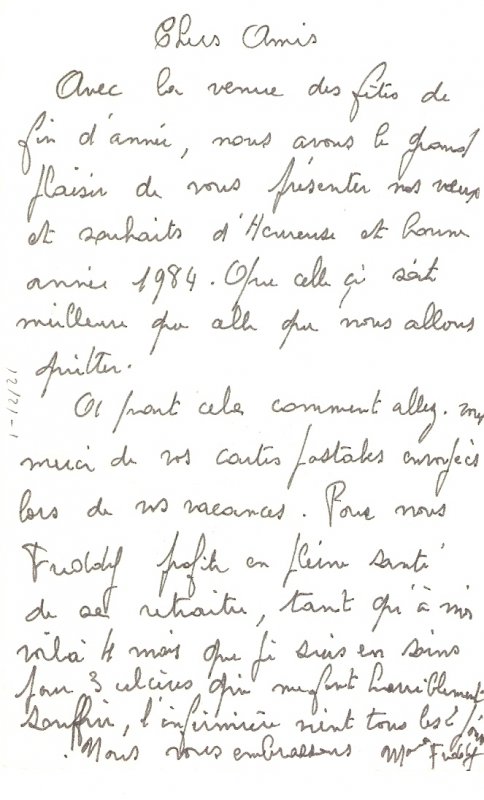 Chers Amis
Avec la venue des fêtes de
fin d'année, nous avons le grand
plaisir de vous présenter nos vœux
et souhaits d'Heureuse et bonne
année 1984. Que celle çi soit
meilleure que celle que nous allons
quitter.
A part cela comment allez-vous
merci de vos cartes postales envoyées
lors de vos vacances. Pour nous
Freddy profite en pleine santé
de sa retraite, tant qu'à moi
voilà 4 mois que je suis en soins
pour 3 ulcères qui me font horriblement
souffrir, l'infirmière vient tous les 2 jours
. Nous vous embrassons Mme Freddy
1-12/21